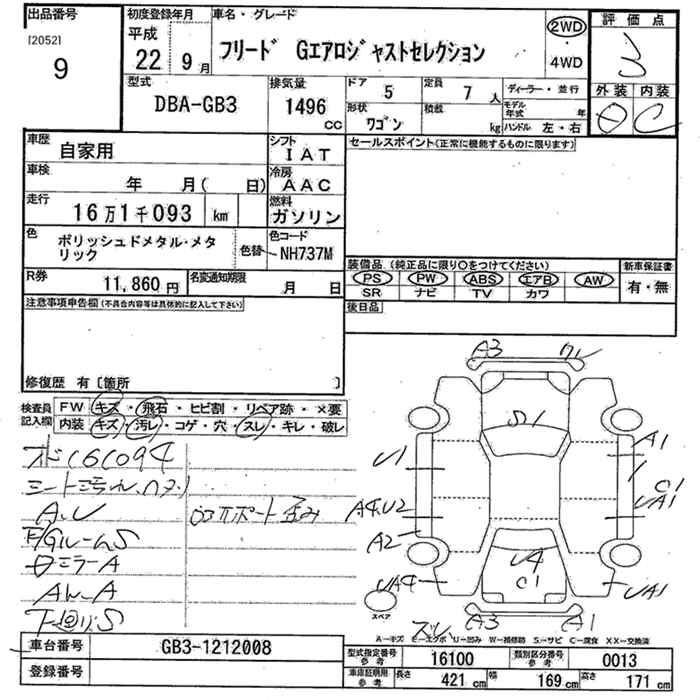 出品番号
[2052]
9
初度登録年月
平成
22年 9月
車名・グレード
フリード Gエアロジャストセレクション
2WD
・
4WD
評価点
3
外装 内装
D C
型式
DBA-GB3
排気量
1496 CC
ドア 5
定員 7人
形状 ワゴン
積載 kg
ディーラー・並行
モデル年式 年
ハンドル 左・右
車歴 自家用
シフト IAT
車検 年 月( 日)
冷房 AAC
走行 16万1千093 km
燃料 ガソリン
色 ポリッシュドメタル・メタリック
色替
色コード NH737M
R券 11,860円
名変通知期限 月 日
セールスポイント(正常に機能するものに限ります)
装備品 (純正品に限り○をつけてください)
PS PW ABS エアB AW
SR ナビ TV カワ
新車保証書
有・無
後日品
注意事項申告欄(不具合内容等は具体的に記入して下さい)
修復歴 有〔箇所 〕
検査員記入欄
FW キズ・飛石・ヒビ割・リペア跡・×要
内装 キズ・汚レ・コゲ・穴・スレ・キレ・破レ
A.U
ミラーA
AW-A
下廻りS
A3
S1
U1
A1
C1
UA1
A4.U2
A2
U4
C1
UA4
UA1
A3
A1
スペア
A－キズ E－エクボ U－凹み W－補修跡 S－サビ C－腐食 XX－交換済
車台番号 GB3-1212008
登録番号
型式指定番号 参考 16100
類別区分番号 参考 0013
車庫証明用 参考
長さ 421 cm
幅 169 cm
高さ 171 cm